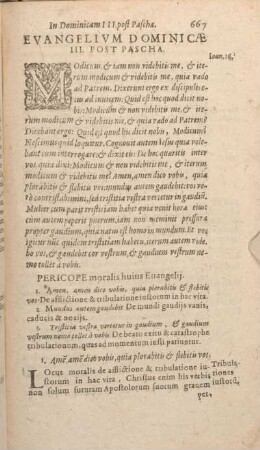 In Dominicam III. post Pascha. 667
EVANGELIVM DOMINICÆ
III. POST PASCHA.
MOdicum, & iam non videbitis me, & ite- Ioan. 16.
rum modicum & videbitis me, quia vado
ad Patrem. Dixerunt ergo ex discipulis e-
ium ad inuicem: Quid est hoc quod dicit no-
bis: Modicum & non videbitis me, & ite-
rum modicum & videbitis me, & quia vado ad Patrem?
Dicebant ergo: Quid est hoc, quod dicit nobis, Modicum?
Nescimus quid loquitur. Cognouit autem Iesus quia vole-
bant eum interrogare, & dixit eis: De hoc quæritis inter
vos, quia dixi: Modicum & non videbitis me, & iterum
modicum & videbitis me. Amen, amen dico vobis, quia
plorabitis & flebitis vos: mundus autem gaudebit: vos ve-
ro contristabimini, sed tristitia vestra vertetur in gaudiū.
Mulier, cum parit tristitiam habet quia venit hora eius
cum autem pepererit puerum, iam non meminit pressuræ
propter gaudium, quia natus est homo in mundum. Et vos
igitur nūc quidem tristitiam habetis, iterum autem vide-
bo vos, & gaudebit cor vestrum, & gaudium vestrum ne-
mo tollet à vobis.
PERICOPE moralis huius Euangelij.
1. Amen, amen dico vobis, quia plorabitis & flebitis
vos. De afflictione & tribulatione iustorum in hac vita.
2. Mundus autem gaudebit. De mundi gaudijs vanis,
caducis & noxijs.
3. Tristitia vestra vertetur in gaudium, & gaudium
vestrum nemo tollet à vobis. De beatis exitu & catastrophe
tribulationum, quas ad momentum iusti patiuntur.
1. Amē amē dico vobis, quia plorabitis & flebitis vos.
LOcus moralis de afflictione & tribulatione iu- Tribula-
storum in hac vita, Christus enim his verbis tiones
non solum futuram Apostolorum suorum grauem iustorū,
per-